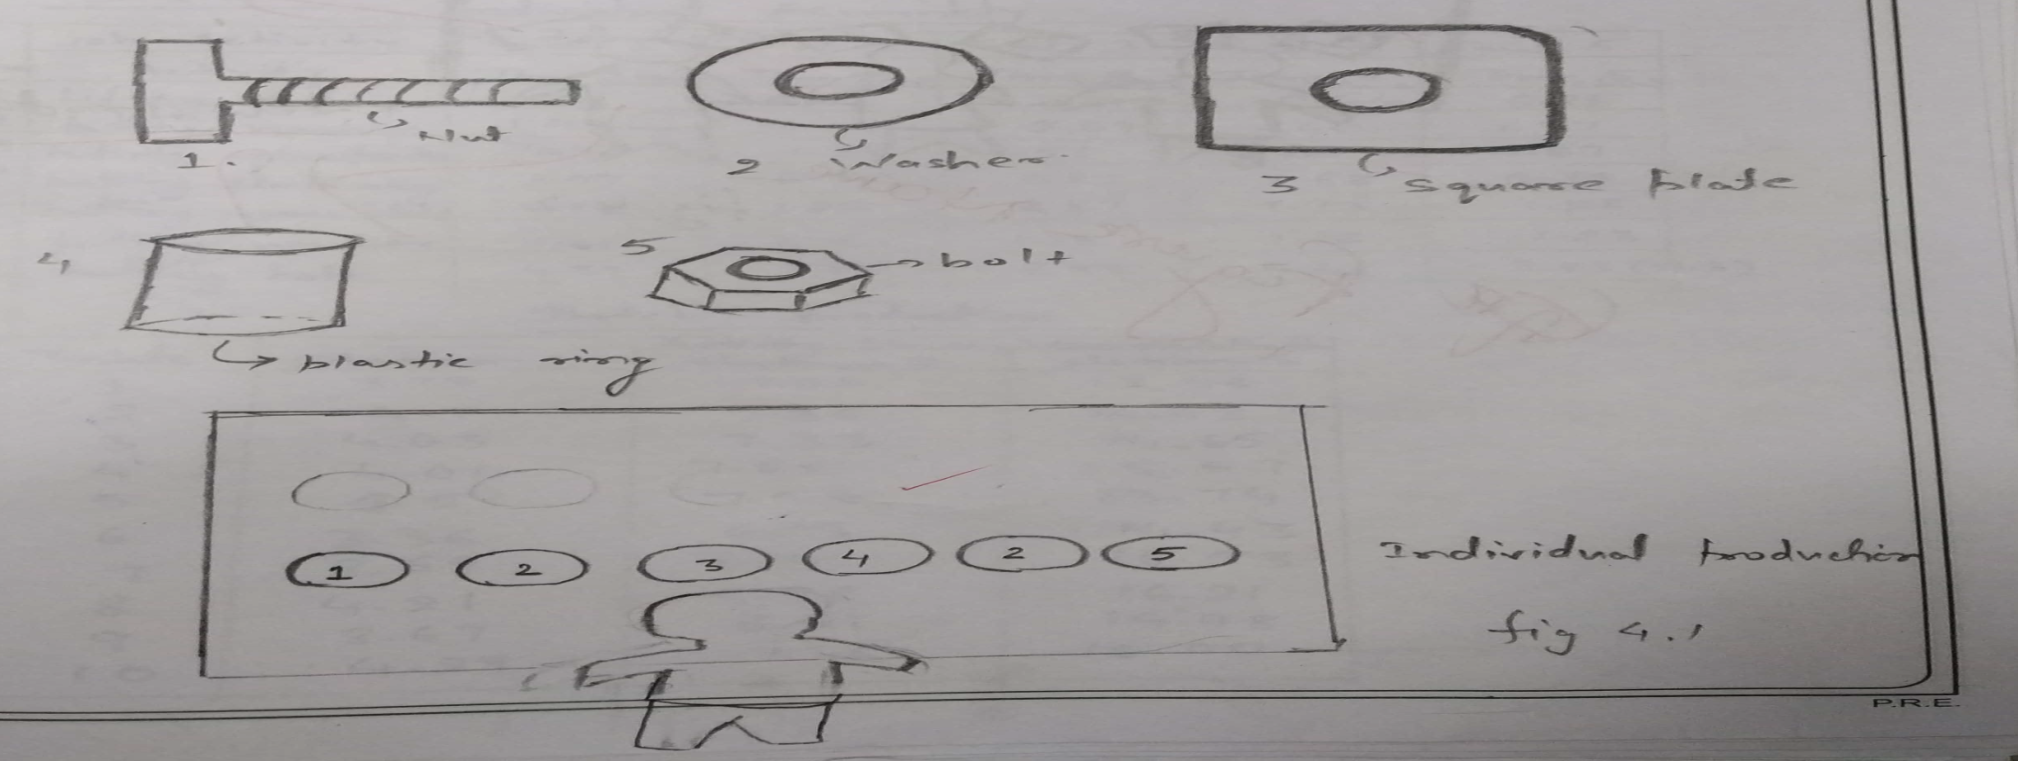 Nut
1.
2 Washer.
3 square plate
4
5 bolt
plastic ring
1 2 3 4 2 5
Individual production
fig 4.1
P.R.E.